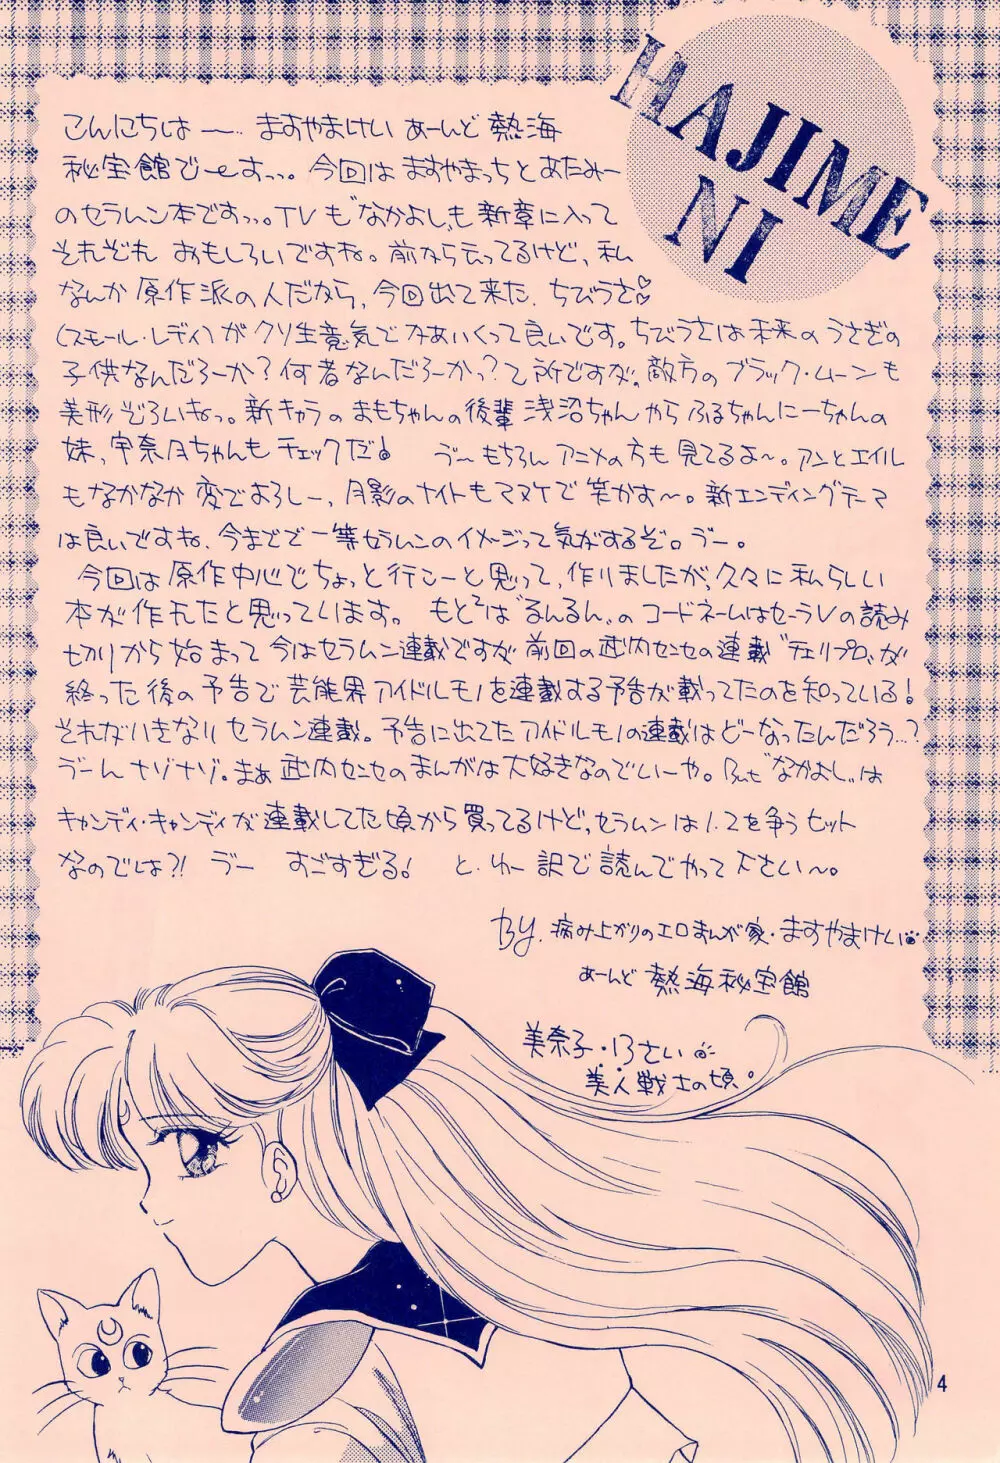 HAJIME
NI
こんにちは〜… ますやまけい あーんど 熱海
秘宝館で〜すっっ。今回は ますやまっちと あたみー
のセラムン本ですっっ。TVも"なかよし"も 新章に入って
それぞれ おもしろいですね。前から云ってるけど、私
なんか 原作派の人だから、今回出て来た、ちびうさ♡
(スモール・レディ)が クソ生意気で かあいくって良いです。ちびうさは 未来の うさぎの
子供なんだろーか?何者なんだろーかっ?て所ですが。敵方の ブラック・ムーンも
美形ぞろいねっ。新キャラの まもちゃんの後輩 浅沼ちゃん やら ふるちゃんにーちゃんの
妹、宇奈月ちゃんも チェックだ! う゛ー もちろん アニメの方も 見てるよ〜。アンとエイル
もなかなか 変でよろしー、月影のナイトもマヌケで 笑かす〜。新エンディングテーマ
は良いですね、今までで一等セラムンのイメージって気がするぞ。う゛ー。
今回は 原作中心でちょっと行こーと思って、作りましたが、久々に私らしい
本が作れたと思っています。 もとそは"るんるん"の コードネームはセーラVの読み
切りから始まって 今はセラムン連載ですが 前回の武内センセの連載"チェリプロ"が
終った後の予告で 芸能界アイドルモノを連載する予告が載ってたのを知っている!
それがいきなり セラムン連載。予告に出てたアイドルモノの連載はどーなったんだろう…?
う゛ーん ナゾナゾ。まぁ 武内センセのまんがは大好きなのでいーや。But"なかよし"は
キャンディ・キャンディが 連載してた頃から買ってるけど、セラムンは1.2を争うヒット
なのでは?! う゛ー すごすぎる! と、ゆー 訳で 読んでやって下さい〜。
By. 病み上がりのエロまんが家・ますやまけい
あーんど 熱海秘宝館
美奈子・13さい
美人戦士の頃。
4